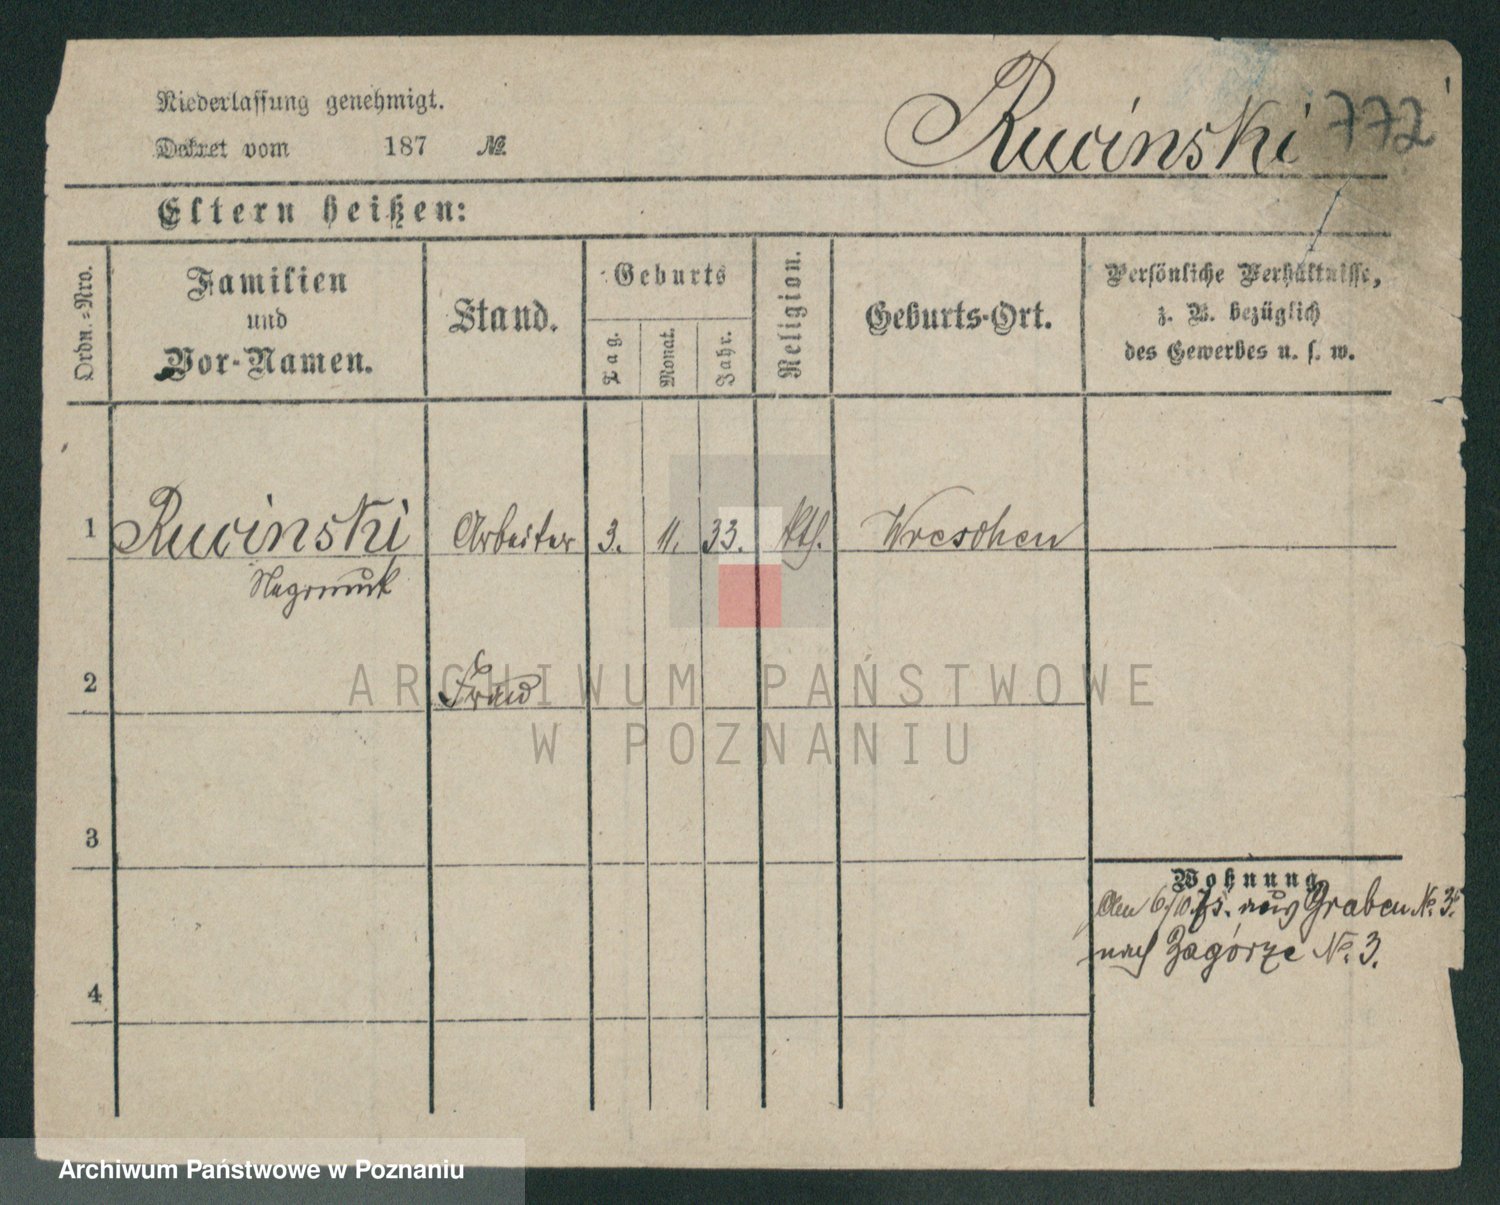 Niederlassung genehmigt.
Dekret vom 187 №
Rucinski 772
Eltern heißen:
Ordn.-Nro.
Familien
und
Vor-Namen.
Stand.
Geburts
Tag.
Monat.
Jahr.
Religion.
Geburts-Ort.
Persönliche Verhältnisse,
z. B. bezüglich
des Gewerbes u. s. w.
1 Rucinski Arbeiter 3. 11. 33. Kth. Wreschen
2
3
4
Wohnung
Den 6/10. 75. aus Graben № 3.
nach Zagórze № 3.
ARCHIWUM PAŃSTWOWE
W POZNANIU
Archiwum Państwowe w Poznaniu